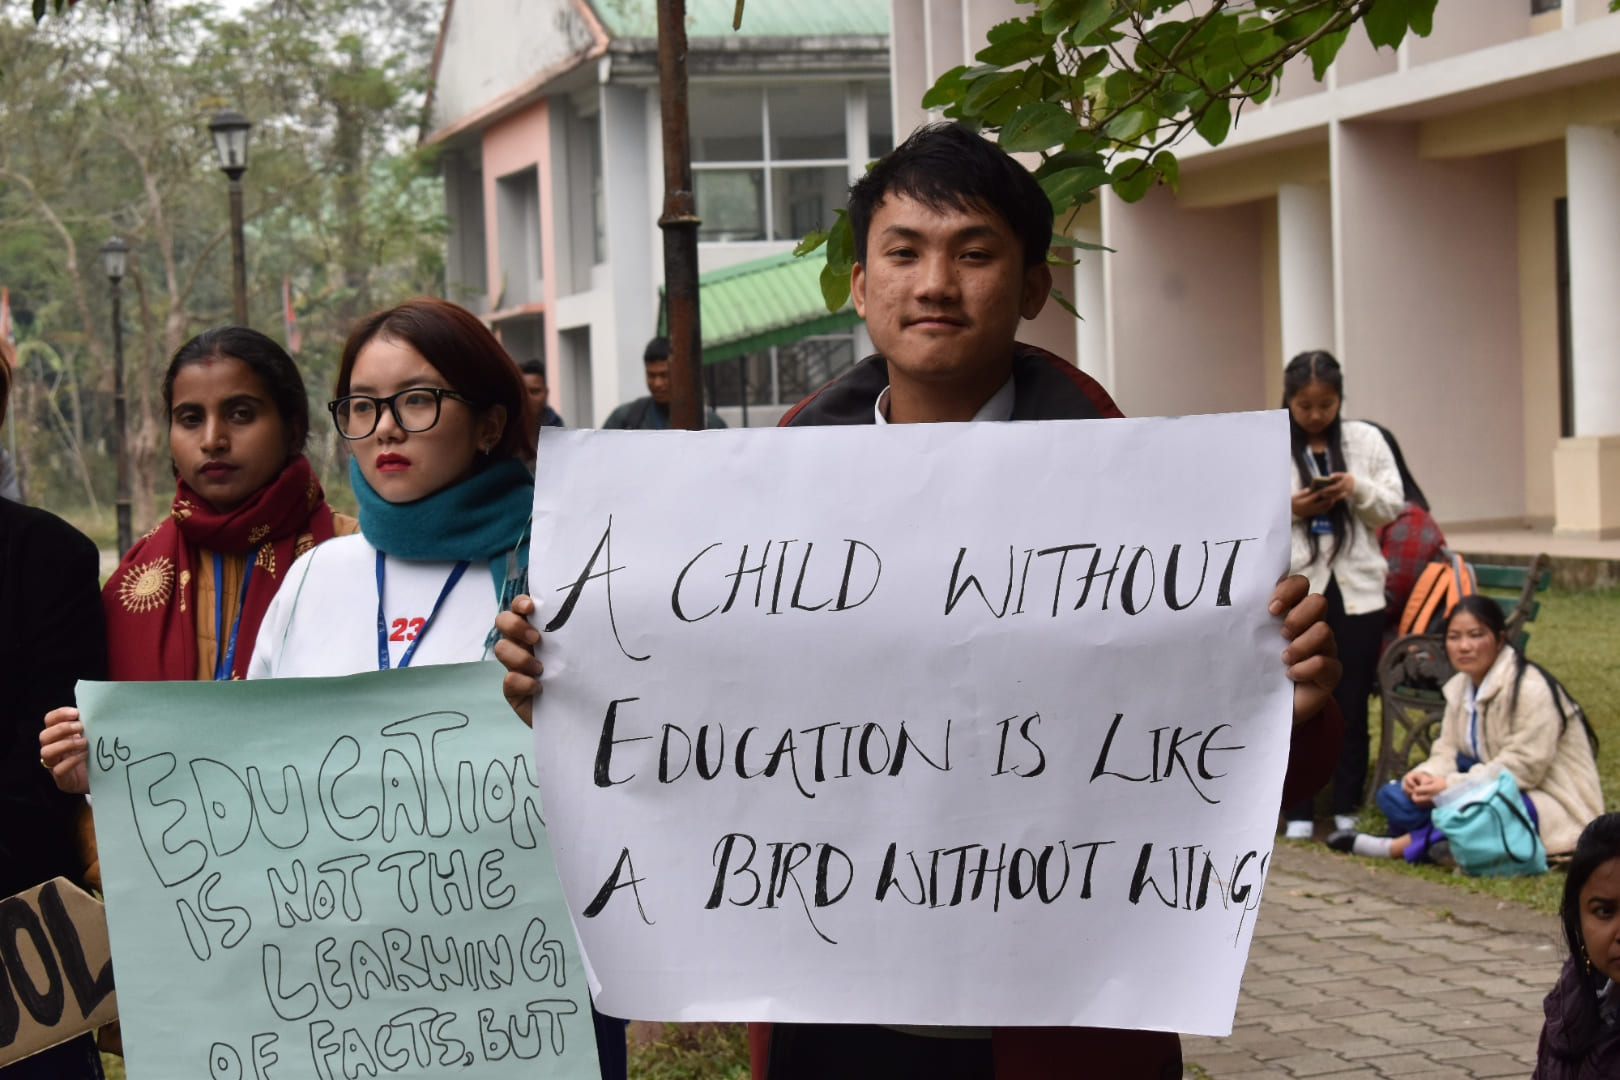 A CHILD WITHOUT
EDUCATION IS LIKE
A BIRD WITHOUT WINGS
"EDUCATION
IS NOT THE
LEARNING
OF FACTS, BUT
OOL
23